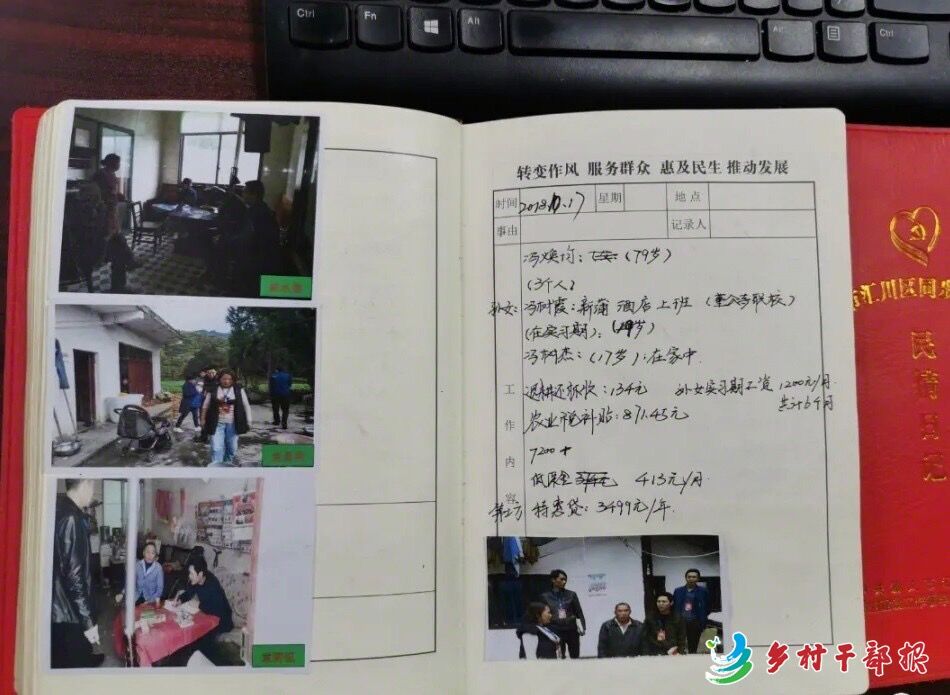 Ctrl
Fn
Alt
Alt
Ctrl
转变作风 服务群众 惠及民生 推动发展
时间
星期
地点
事由
记录人
冯焕均: (79岁)
(3个人)
孙女: 冯树霞: 新蒲酒店上班
(在实习期): (19岁)
冯树杰: (17岁): 在家中.
工作内容
退耕还林款: 134元
孙女实习期工资 1200元/月.
共计6个月
农业税补贴: 871.45元
7200+
低保金 413元/月.
特惠贷: 3499元/年.
汇川区同
民情日记
乡村干部报